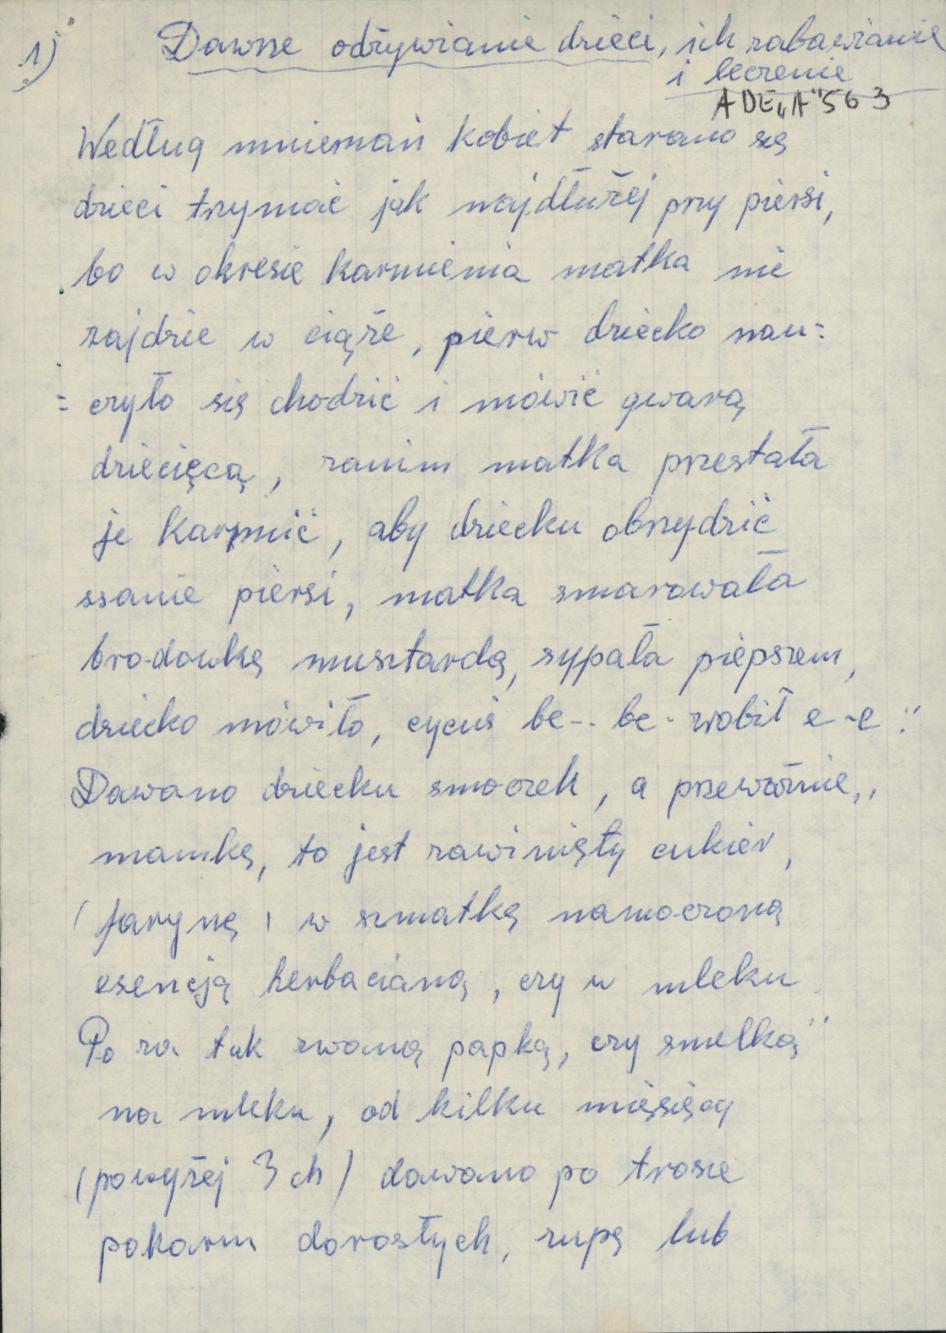 1) Dawne odżywianie dzieci, ich zabawianie
i leczenie
ADE„A"563
Według mniemań kobiet starano się
dzieci trzymać jak najdłużej przy piersi,
bo w okresie karmienia matka nie
zajdzie w ciąże, pierw dziecko nau=
= czyło się chodzić i mówić gwarą
dziecięcą, zanim matka przestała
je karmić, aby dziecku obrzydzić
ssanie piersi, matka smarowała
brodawkę musztardą, sypała pieprzem,
dziecko mówiło, cycuś be-- be - zrobił e-e"
Dawano dziecku smoczek, a przeważnie,,
mamkę, to jest zawinięty cukier,
(farynę) w szmatkę namoczoną
esencją herbacianą, czy w mleku
Po za tak zwaną papką, czy smelką"
na mleku, od kilku miesięcy
(powyżej 3 ch) dawano po trosze
pokarm dorosłych, zupę lub